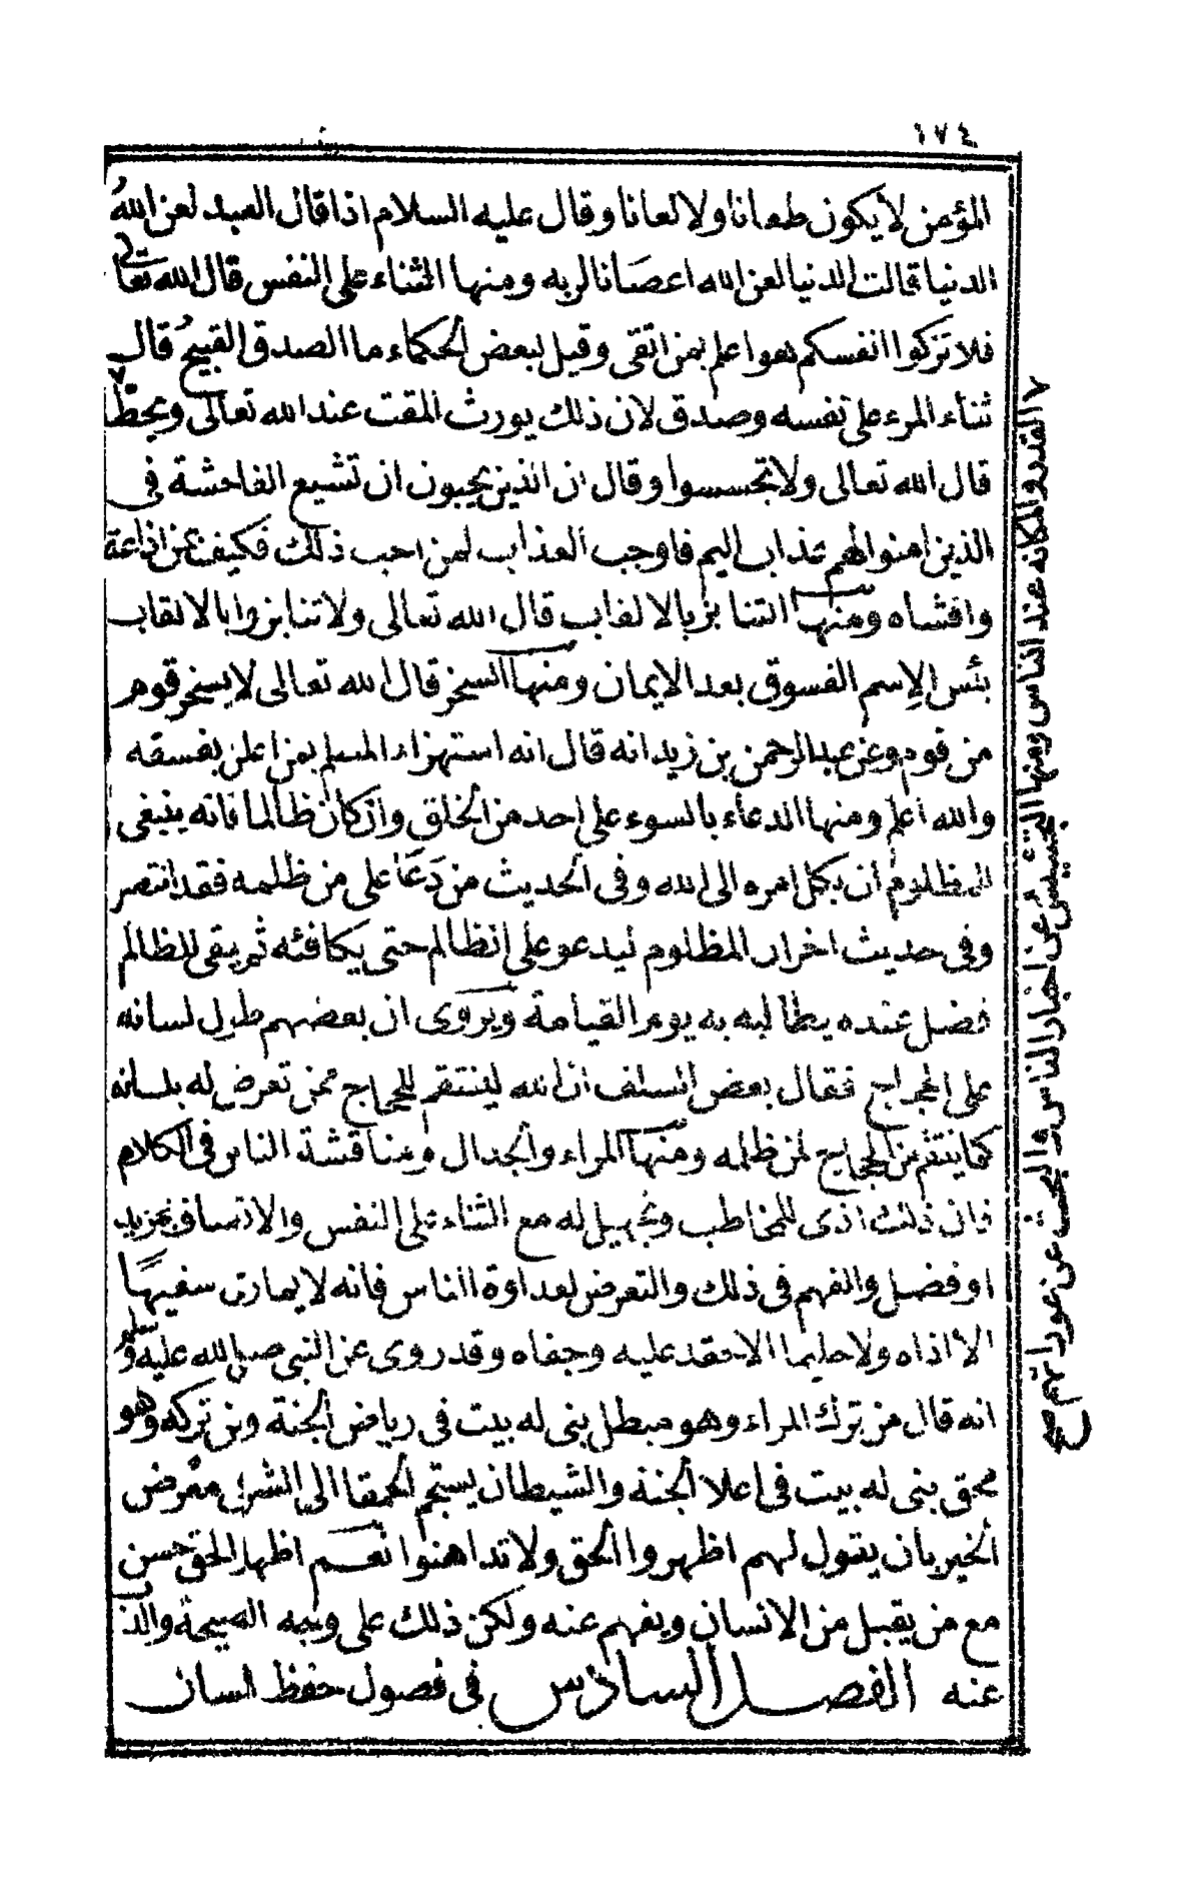 ١٧٤
المؤمن لا يكون طعانا ولا لعانا وقال عليه السلام اذا قال العبد لعن الله
الدنيا قالت الدنيا لعن الله اعصانا لربه ومنها الثناء على النفس قال الله تعالى
فلا تزكوا انفسكم هو اعلم بمن اتقى وقيل لبعض الحكماء ما الصدق القبيح قال
ثناء المرء على نفسه وصدق لان ذلك يورث المقت عند الله تعالى ويحط
قال الله تعالى ولا تجسسوا وقال ان الذين يحبون ان تشيع الفاحشة في
الذين امنوا لهم عذاب اليم فاوجب العذاب لمن احب ذلك فكيف بمن اذاعة
وافشاه ومنها التنابز بالالقاب قال الله تعالى ولا تنابزوا بالالقاب
بئس الاسم الفسوق بعد الايمان ومنها السخر قال الله تعالى لا يسخر قوم
من قوم وعن عبد الرحمن بن زيد انه قال انه استهزاء المسلم بمن اعلن بفسقه
والله اعلم ومنها الدعاء بالسوء على احد من الخلق وان كان ظالما فانه ينبغى
للمظلوم ان يكل امره الى الله وفى الحديث من دعا على من ظلمه فقد انتصر
وفى حديث اخران المظلوم ليدعو على الظالم حتى يكافئه ثم يبقى للظالم
فضل عنده يطالبه به يوم القيامة ويروى ان بعضهم طول لسانه
على الحجاج فقال بعض السلف ان الله لينتقم للحجاج ممن تعرض له بلسانه
كما ينتقم من الحجاج لمن ظلمه ومنها المراء والجدال ومناقشة الناس فى الكلام
فان ذلك اذى للمخاطب وتجهيل له مع الثناء على النفس والاتصاف بمزيد
او فضل والفهم فى ذلك والتعرض لعداوة الناس فانه لا يمارى سفيها
الا اذاه ولا حليما الا حقد عليه وجفاه وقد روى عن النبي صلى الله عليه وسلم
انه قال من ترك المراء وهو مبطل بنى له بيت فى رياض الجنة ومن تركه وهو
محق بنى له بيت فى اعلا الجنة والشيطان يستجر الحمقا الى الشر فى معرض
الخير بان يقول لهم اظهروا الحق ولا تداهنوا نعم اظهار الحق حسن
مع من يقبل من الانسان ويفهم عنه ولكن ذلك على وجه النصيحة والذب
عنه الفصل السادس فى فصول حفظ اللسان
٧ القدر والمكانه عند الناس ومنها التجسيس عن اخبار الناس والبحث عن عوراتهم صح